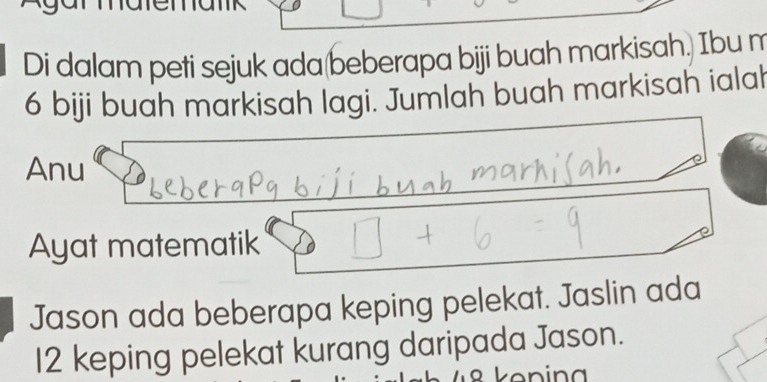 Di dalam peti sejuk ada beberapa biji buah markisah. Ibu
6 biji buah markisah lagi. Jumlah buah markisah ialah
Anu beberapa biji buah marhisah.
Ayat matematik □ + 6 = 9
Jason ada beberapa keping pelekat. Jaslin ada
12 keping pelekat kurang daripada Jason.
48 keping